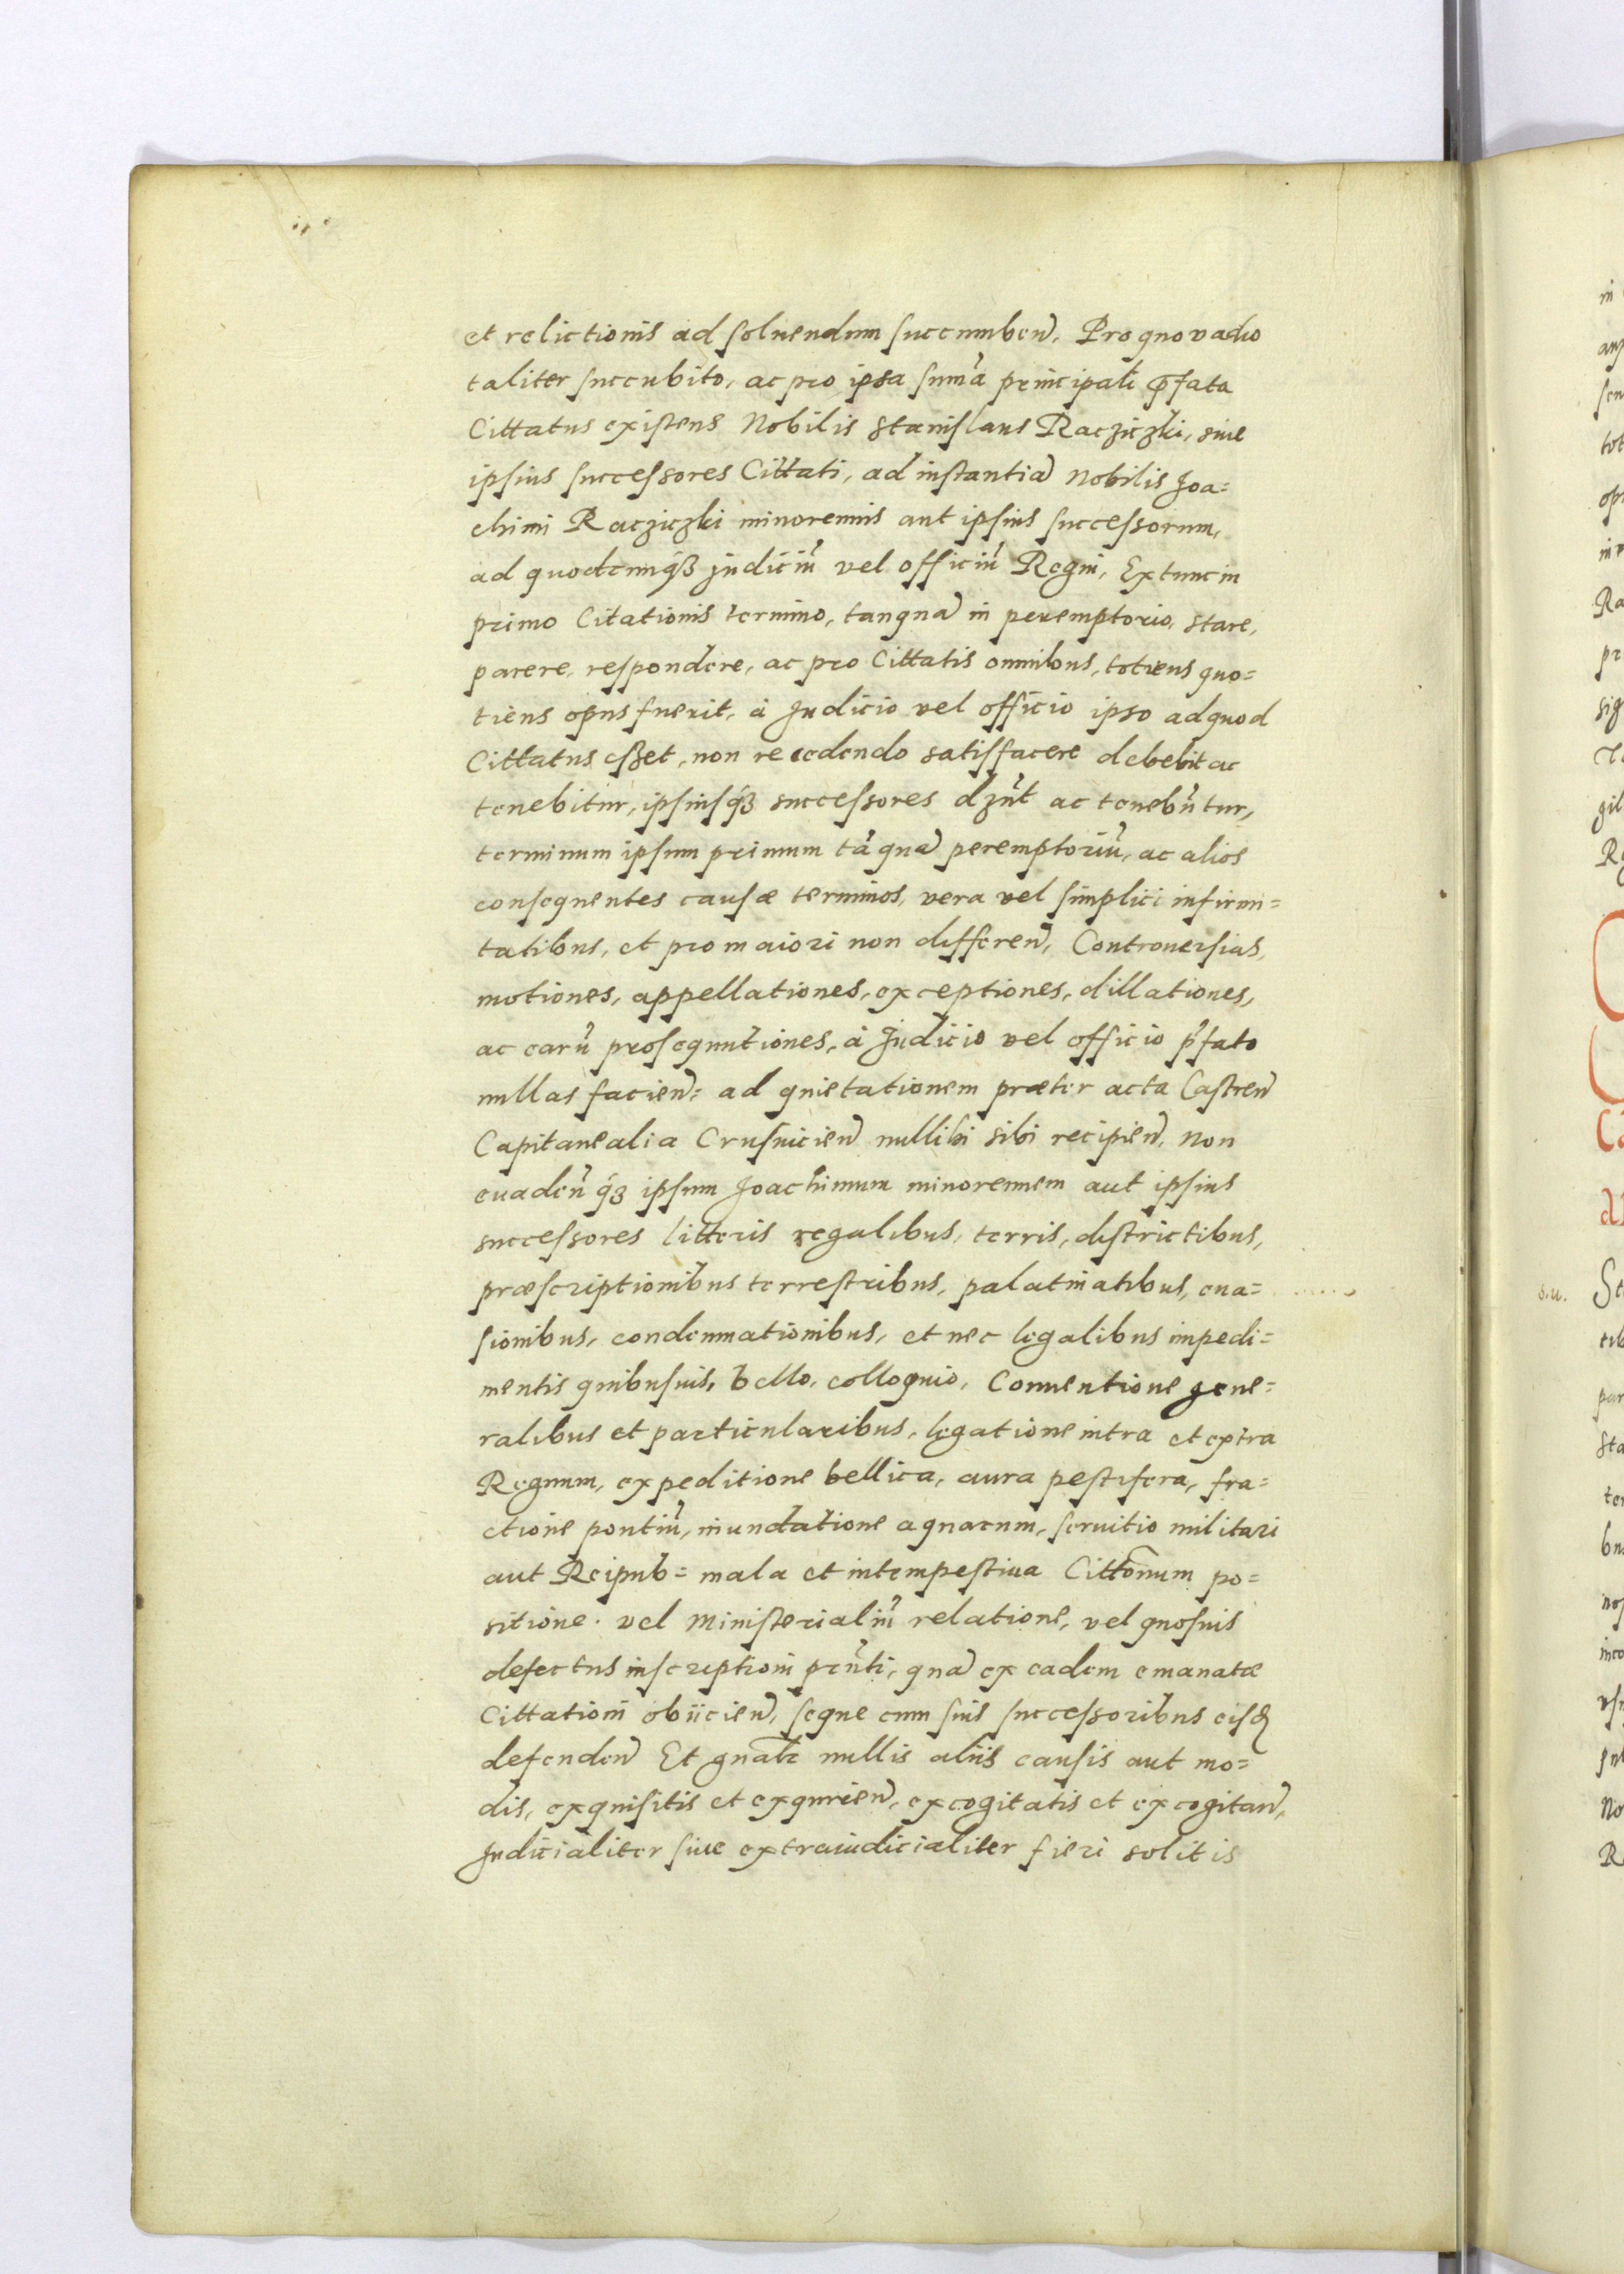 et relictionis ad soluendum succumben̄. Pro quo vadio
taliter succubito, ac pro ipsa sum̄a principali p̄fata
Cittatus existens Nobilis Stanislaus Racziczki, siue
ipsius successores Cittati, ad instantiā Nobilis Joa=
chimi Racziczki minorennis aut ipsius successorum,
ad quodcunqꝫ judiciū vel officiū Regni, Extunc in
primo Citationis termino, tanquā in peremptorio, stare,
parere, respondere, ac pro Cittatis omnibus, totiens quo=
tiens opus fuerit, à Judicio vel officio ipso ad quod
Cittatus eßet, non recedendo satisfacere debebit ac
tenebitur, ipsiusqꝫ successores dꝫūt ac tenebūtur,
terminum ipsum primum tā quā peremptoriū, ac alios
consequentes causæ terminos, vera vel simplici infirmi=
tatibus, et pro maiori non differen̄, Controuersias,
motiones, appellationes, exceptiones, dillationes,
ac earū prosequutiones, à Judicio vel officio p̄fato
nullas facien̄= ad quietationem præter acta Castren̄
Capitanealia Crusuicien̄ nullibi sibi recipien̄, non
euaden̄ qꝫ ipsum Joachimum minorennem aut ipsius
successores litteris regalibus, terris, districtibus,
præscriptionibus terrestribus, palatinatibus, eua=
sionibus, condemnationibus, et nec legalibus impedi=
mentis quibusuis, bello, colloquio, Conuentione gene=
ralibus et particularibus, legatione intra et extra
Regnum, expeditione bellica, aura pestifera, fra=
ctione pontiū, inundatione aquarum, seruitio militari
aut Reipub= mala et intempestiua Citto͞num po=
sitione. vel Ministerialiū relatione, vel quosuis
defectus inscriptioni prn̄ti, quā ex eadem emanatæ
Cittationi obiicien̄, seque cum suis successoribus eisdꝫ
defenden̄ Et gn̄alr nullis aliis causis aut mo=
dis, exquisitis et exquiren̄, excogitatis et excogitan̄,
Judicialiter siue extraiudicialiter fieri solitis